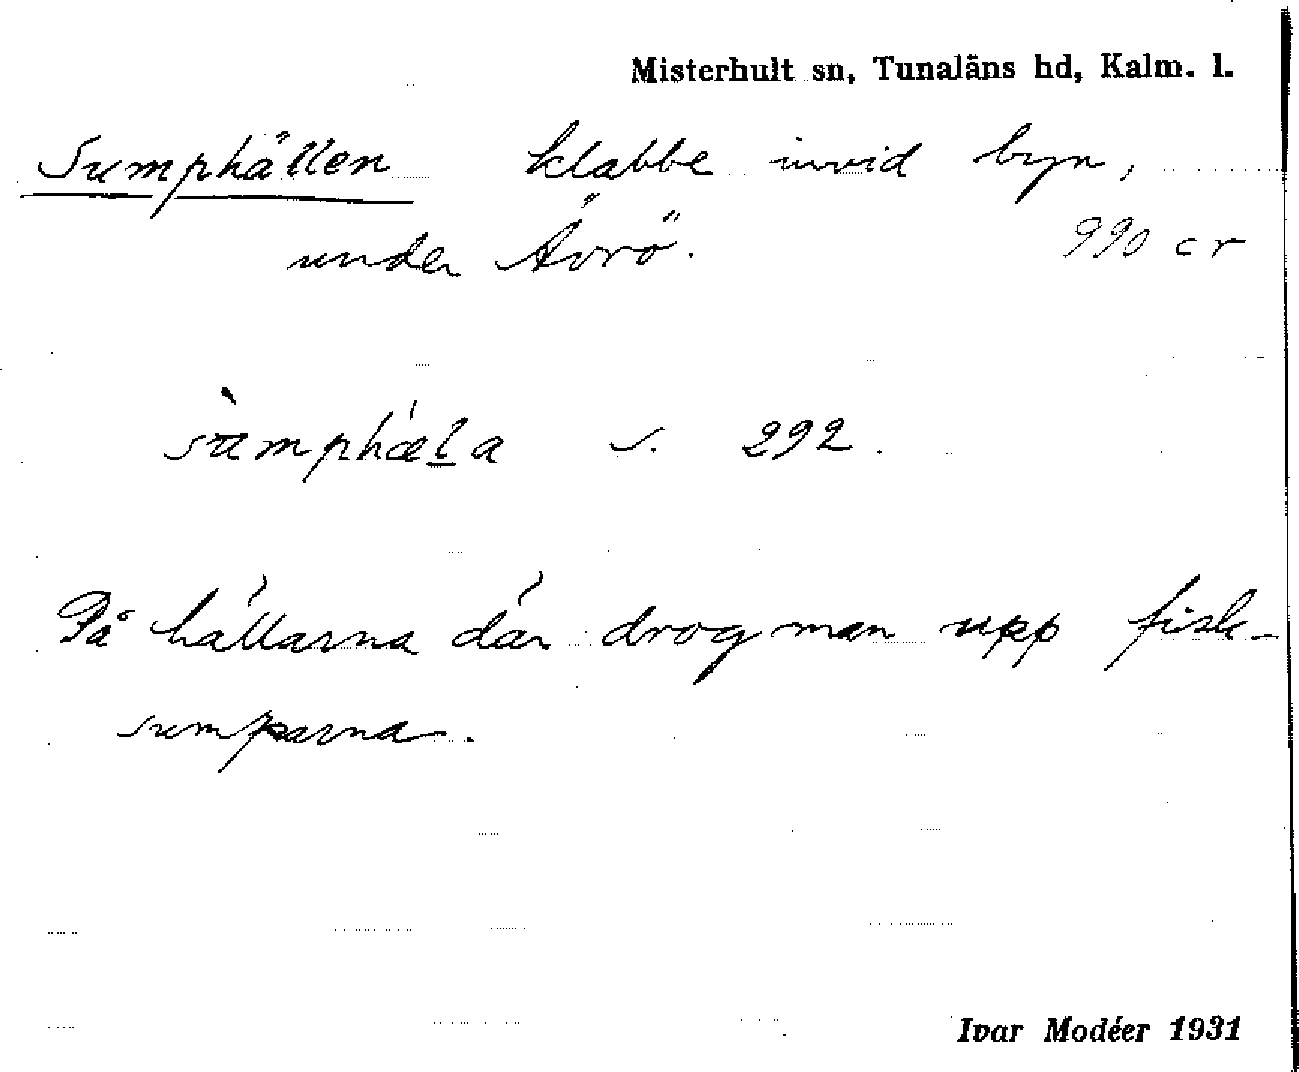 Misterhult sn, Tunaläns hd, Kalm. l.
Sumphällen klabbe invid byn,
under Ävrö. 990 c r
sùmphæ̀l̲a s. 292.
På hällarna där drog man upp fisk-
sumparna.
Ivar Modéer 1931